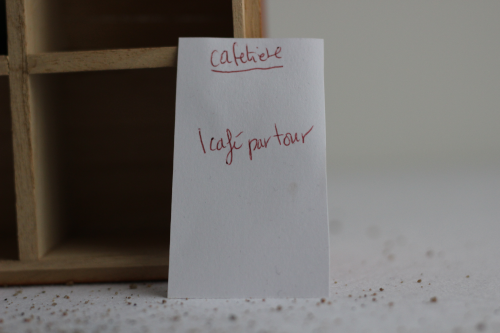 cafetiere
1 café par tour